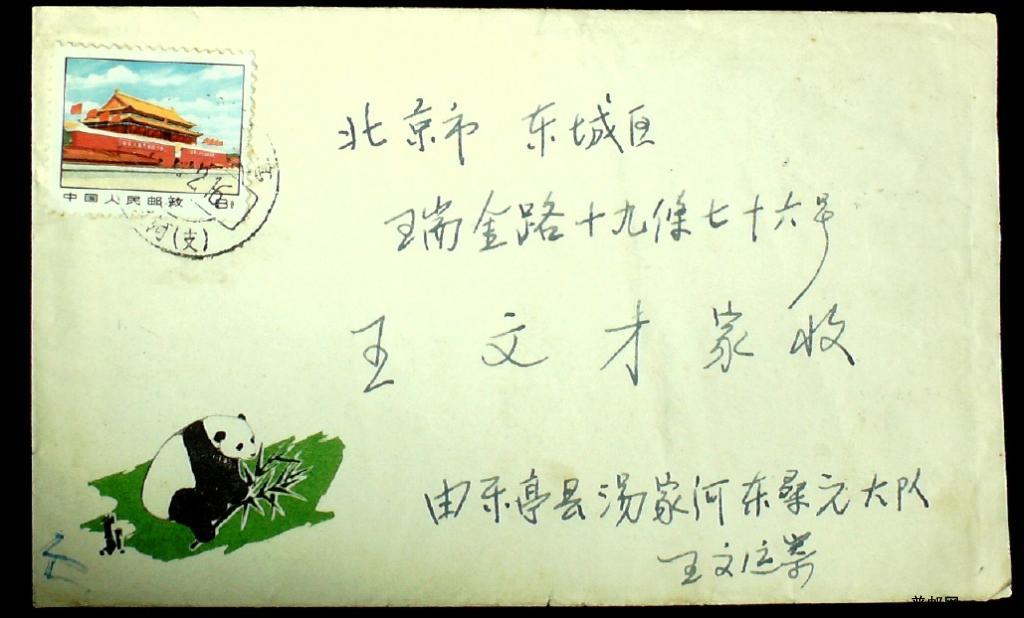 中国人民邮政 8分
2.16
河(支)
北京市 东城区
瑞金路十九條七十六号
王文才家收
由乐亭县汤家河东桑元大队
王文运寄